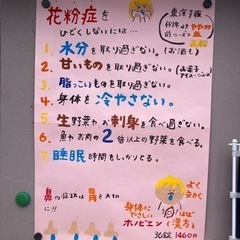 花粉症を
ひどくしないには…
東洋予報
例年より やや多
前シーズン
1. 水分を取り過ぎない。(お酒も)
2. 甘いものを取り過ぎない。(お菓子 アイス・ジュース)
3. 脂っこいものを取り過ぎない。
4. 身体を冷やさない。
5. 生野菜やお刺身を食べ過ぎない。
6. 魚やお肉の2倍以上の野菜を食べる。
7. 睡眠時間をしっかりとる。
鼻の症状は胃を大切に!!
よく効く
身体にやさしい
ホノビエン(漢方)
36錠 1460円